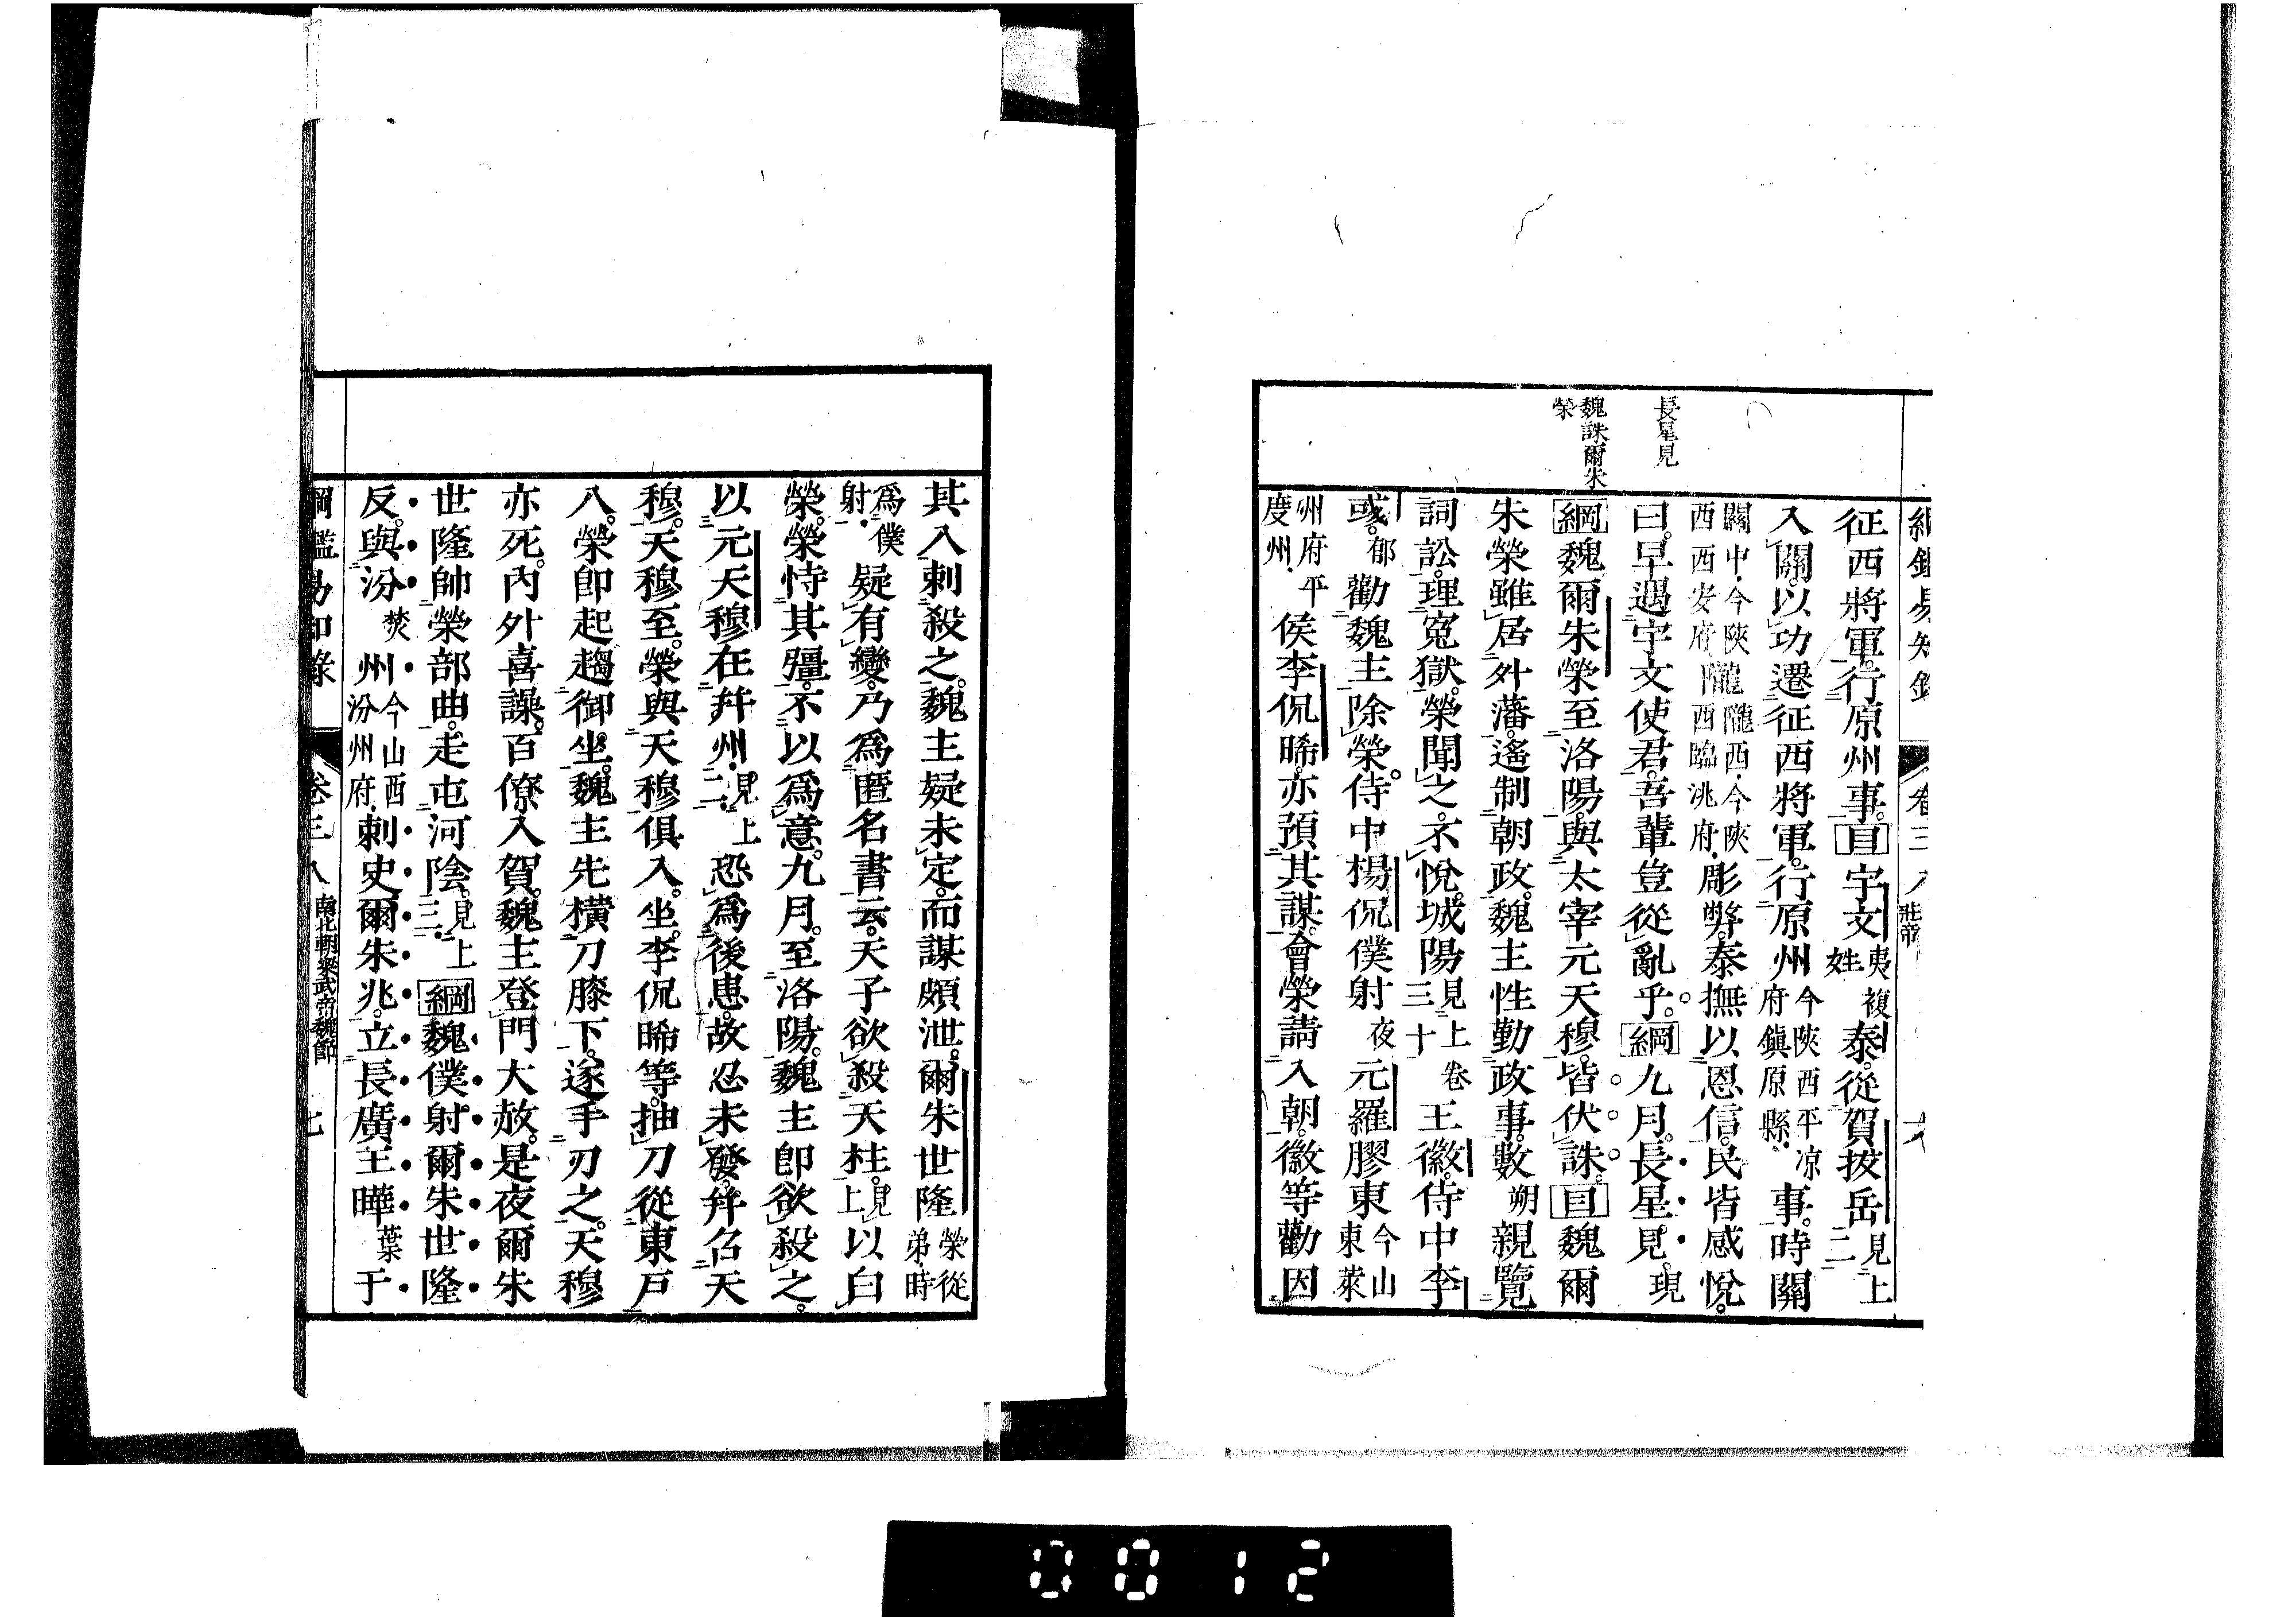 長星見
魏誅爾朱
榮
征西將軍。行原州事。目宇文夷複姓泰。從賀拔岳見上二
入關。以功遷征西將軍。行原州今陝西平凉府鎮原縣．事。時關
關中．今陝西西安府隴隴西．今陝西臨洮府．彫弊。泰撫以恩信。民皆感悅。
曰。早遇宇文使君。吾輩豈從亂乎。綱九月。長星見。現
綱魏爾朱榮至洛陽。與太宰元天穆。皆伏誅。目魏爾
朱榮雖居外藩。遙制朝政。魏主性勤政事。數朔親覽
詞訟。理寃獄。榮聞之。不悅。城陽見上卷三十王徽。侍中李
彧。郁勸魏主除榮。侍中楊侃僕射夜元羅膠東今山東萊
州府平度州．侯李侃晞。亦預其謀。會榮請入朝。徽等勸因
其入刺殺之。魏主疑未定。而謀頗泄。爾朱世隆榮從弟．時
爲僕射．疑有變。乃爲匿名書云。天子欲殺天柱。見上以白
榮。榮恃其彊。不以爲意。九月。至洛陽。魏主卽欲殺之。
以元天穆在幷州．見上二．恐爲後患。故忍未發。幷召天
穆。天穆至。榮與天穆俱入。坐。李侃晞等。抽刀從東戶
入。榮卽起趨御坐。魏主先橫刀膝下。遂手刃之。天穆
亦死。內外喜譟。百僚入賀。魏主登門大赦。是夜爾朱
世隆帥榮部曲。走屯河陰。見上三．綱魏僕射爾朱世隆
反。與汾焚州今山西汾州府．刺史爾朱兆。立長廣王曄葉于
綱鑑易知錄 卷三八 南北朝梁武帝魏節 七